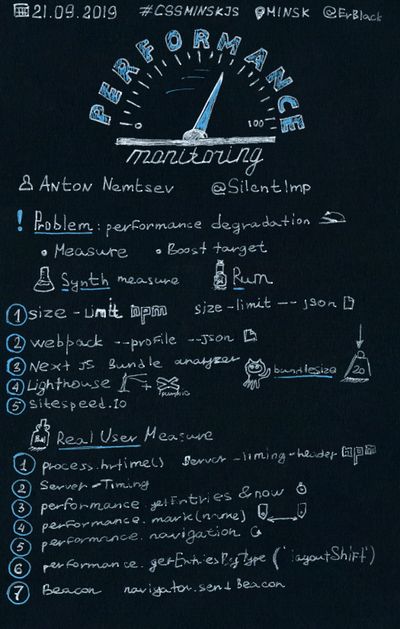 21.09.2019 #CSSMINSKJS MINSK @ErBlack
PERFORMANCE
0 100
monitoring
Anton Nemtsev @SilentImp
! Problem: performance degradation
• Measure • Boost target
Synth measure Rum
1 size-limit npm size-limit --json
2 webpack --profile --json
3 Next JS Bundle analyzer
bundlesize 20
4 Lighthouse +
5 sitespeed.io
Real User Measure
1 process.hrtime() Server-timing-header npm
2 Server-Timing
3 performance getEntries & now
4 performance.mark(name)
5 performance.navigation
6 performance.getEntriesByType('layoutShift')
7 Beacon navigator.sendBeacon